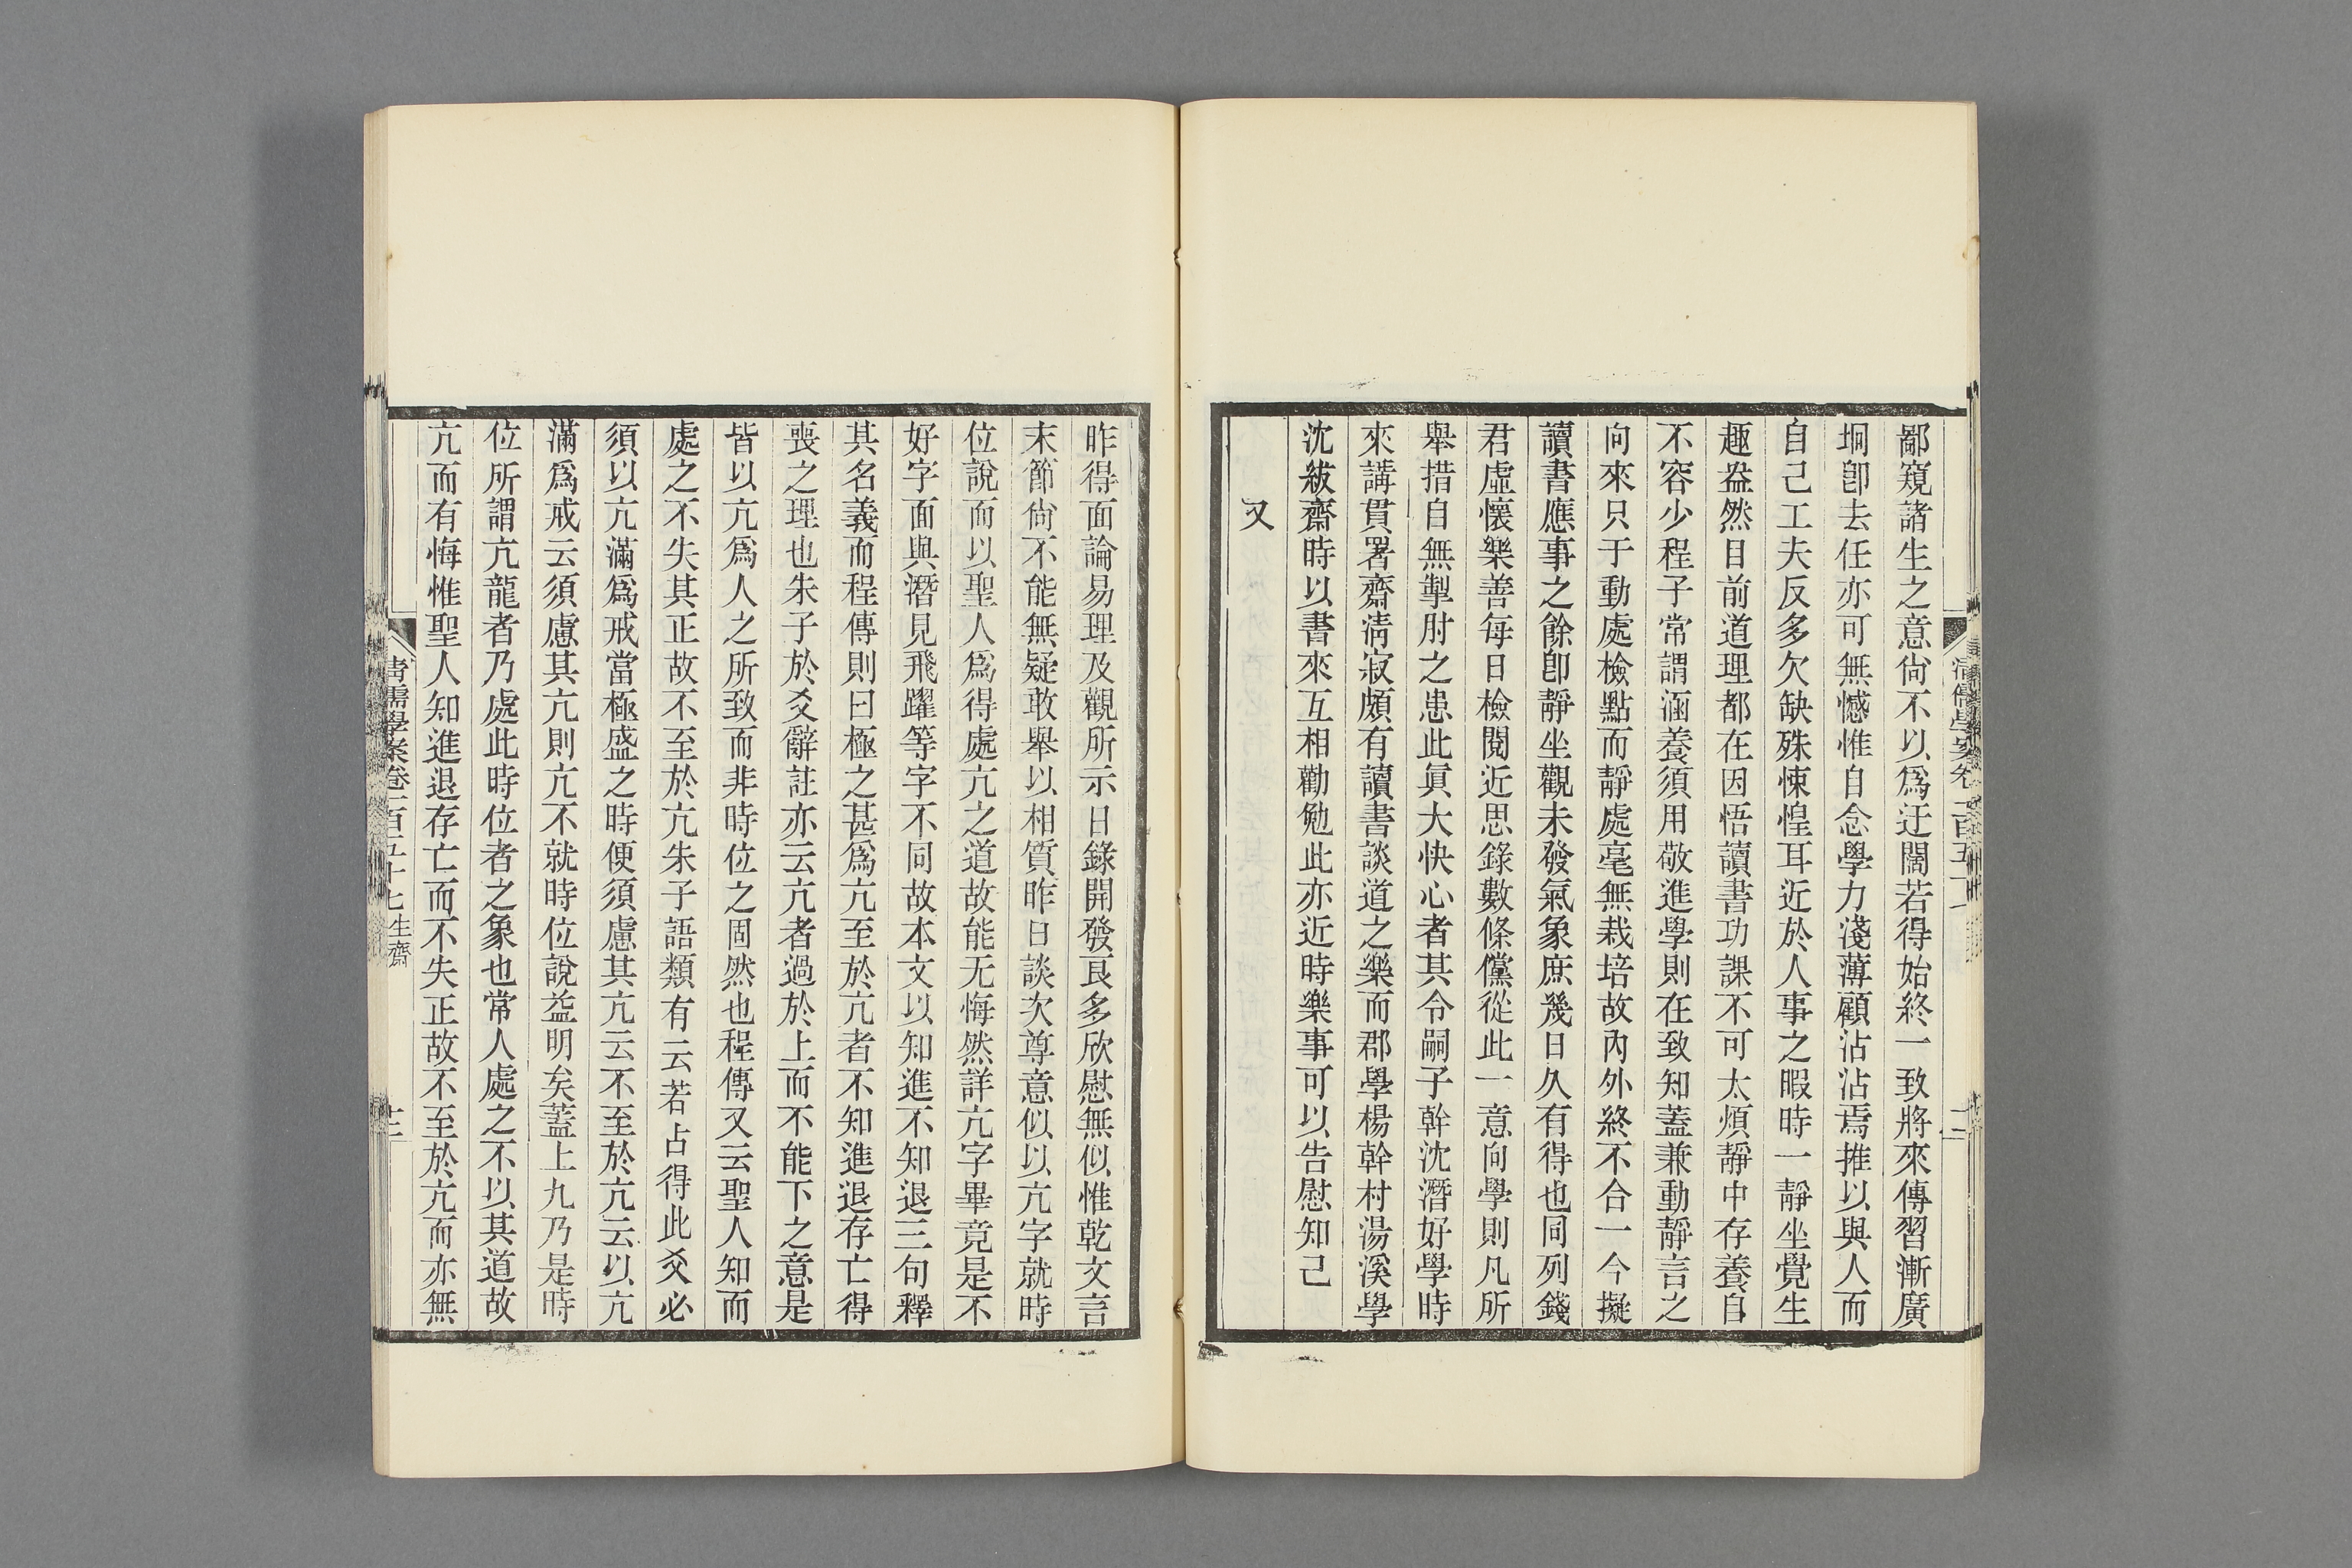 鄙窺諸生之意尙不以爲迂闊若得始終一致將來傳習漸廣
坰卽去任亦可無憾惟自念學力淺薄顧沾沾焉推以與人而
自己工夫反多欠缺殊悚惶耳近於人事之暇時一靜坐覺生
趣盎然目前道理都在因悟讀書功課不可太煩靜中存養自
不容少程子常謂涵養須用敬進學則在致知蓋兼動靜言之
向來只于動處檢點而靜處毫無栽培故內外終不合一今擬
讀書應事之餘卽靜坐觀未發氣象庶幾日久有得也同列錢
君虛懷樂善每日檢閱近思錄數條儻從此一意向學則凡所
舉措自無掣肘之患此眞大快心者其令嗣子幹沈潛好學時
來講貫署齋淸寂頗有讀書談道之樂而郡學楊幹村湯溪學
沈紱齋時以書來互相勸勉此亦近時樂事可以告慰知己
又
昨得面論易理及觀所示日錄開發良多欣慰無似惟乾文言
末節尙不能無疑敢舉以相質昨日談次尊意似以亢字就時
位說而以聖人爲得處亢之道故能无悔然詳亢字畢竟是不
好字面與潛見飛躍等字不同故本文以知進不知退三句釋
其名義而程傳則曰極之甚爲亢至於亢者不知進退存亡得
喪之理也朱子於爻辭註亦云亢者過於上而不能下之意是
皆以亢爲人之所致而非時位之固然也程傳又云聖人知而
處之不失其正故不至於亢朱子語類有云若占得此爻必
須以亢滿爲戒當極盛之時便須慮其亢云不至於亢云以亢
滿爲戒云須慮其亢則亢不就時位說益明矣蓋上九乃是時
位所謂亢龍者乃處此時位者之象也常人處之不以其道故
亢而有悔惟聖人知進退存亡而不失正故不至於亢而亦無
淸儒學案卷二百五十七 生齋